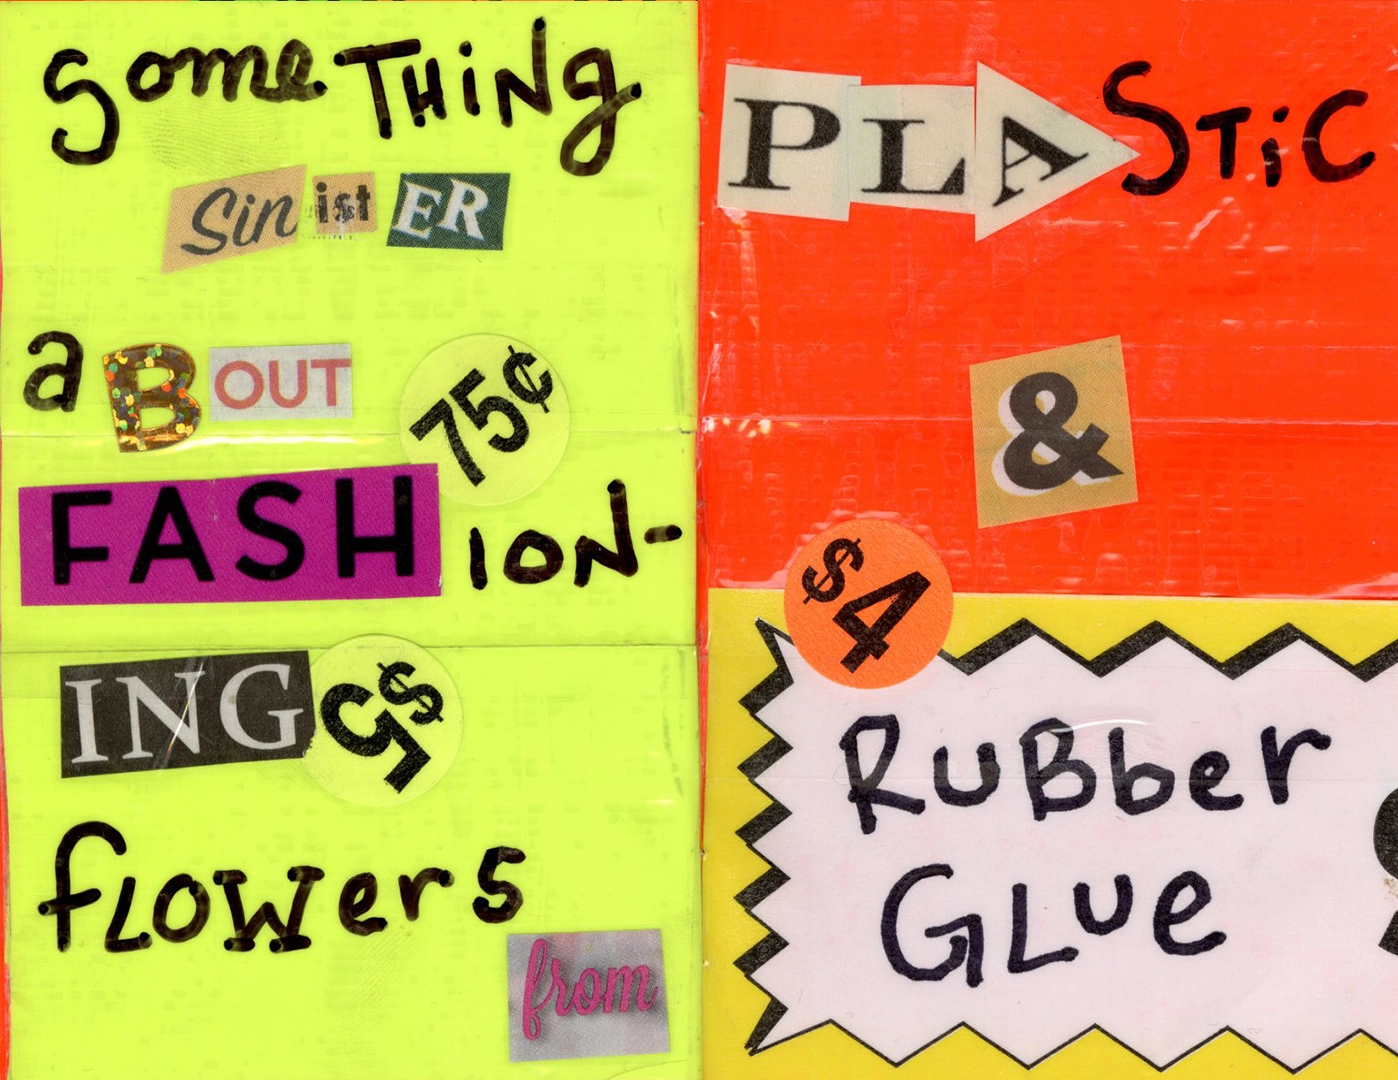 someTHiNg
SinistER
aBOUT
75¢
FASHION-
ING
$5
flowers
from
PLASTiC
&
$4
RuBber
GLue